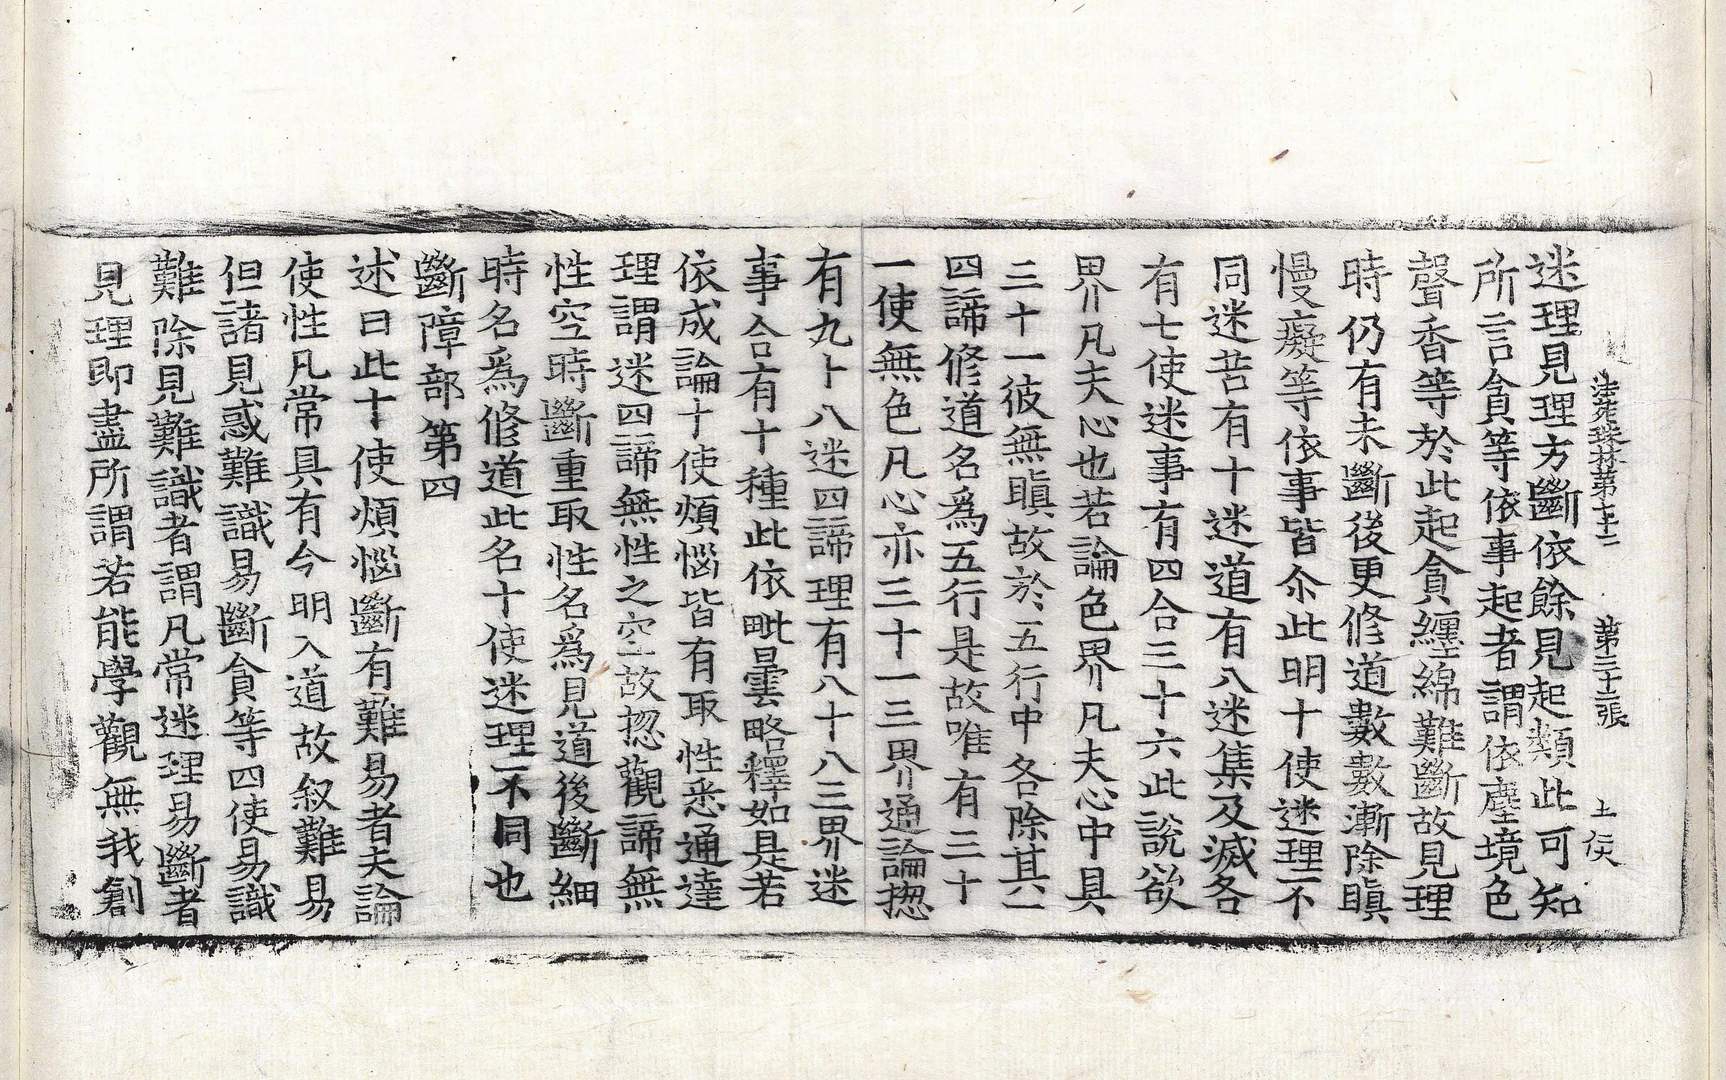 法苑珠林第七十二 第三十二張 土侯
迷理見理方斷依餘見起類此可知
所言貪等依事起者謂依塵境色
聲香等於此起貪纏綿難斷故見理
時仍有未斷後更修道數數漸除瞋
慢癡等依事皆尒此明十使迷理不
同迷苦有十迷道有八迷集及滅各
有七使迷事有四合三十六此說欲
界凡夫心也若論色界凡夫心中具
三十一彼無瞋故於五行中各除其一
四諦修道名爲五行是故唯有三十
一使無色凡心亦三十一三界通論揔
有九十八迷四諦理有八十八三界迷
事合有十種此依毗曇略釋如是若
依成論十使煩惱皆有取性悉通達
理謂迷四諦無性之空故揔觀諦無
性空時斷重取性名爲見道後斷細
時名爲修道此名十使迷理不同也
斷障部第四
述曰此十使煩惱斷有難易者夫論
使性凡常具有今明入道故叙難易
但諸見惑難識易斷貪等四使易識
難除見難識者謂凡常迷理易斷者
見理即盡所謂若能學觀無我創